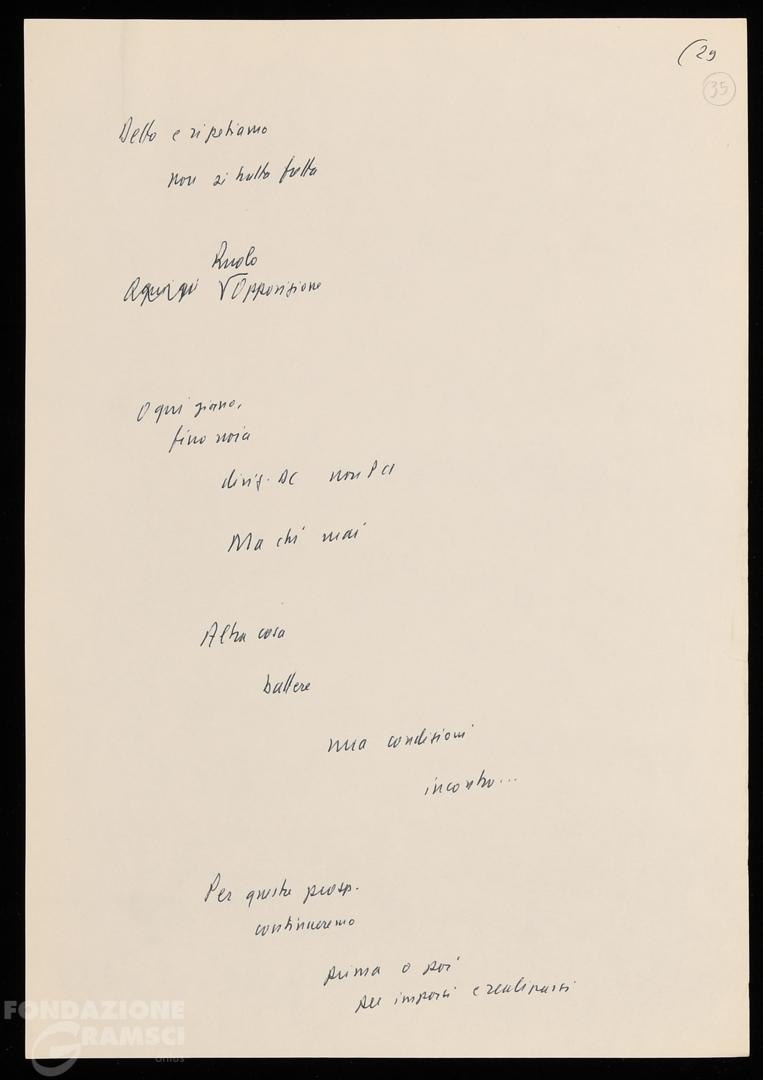 (29
35
Detto e ripetiamo
non si tratta fretta
Ruolo
Opposizione
Ogni giorno,
fino noia
dirig. DC non PCI
Ma chi mai
Altra cosa
battere
condizioni
incontro...
Per questa prosp.
continueremo
prima o poi
per imporsi e realizzarsi
FONDAZIONE
GRAMSCI
onlus